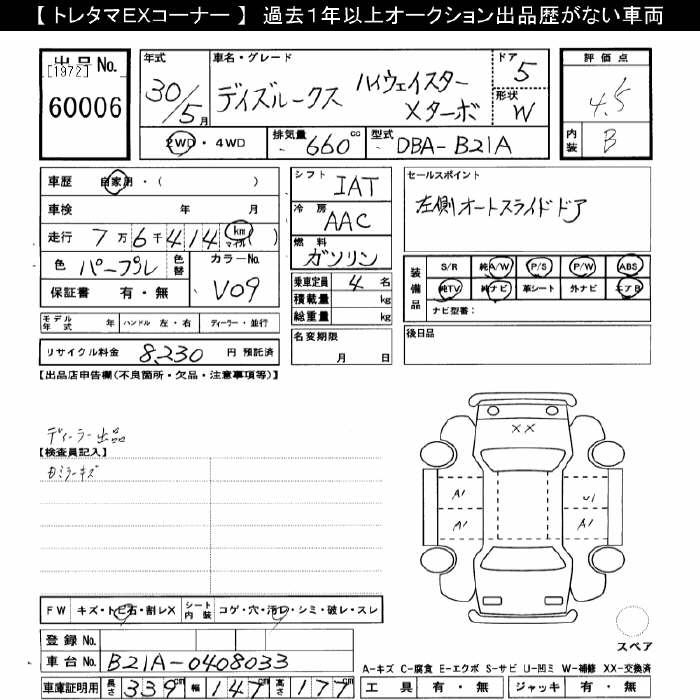 【 トレタマEXコーナー 】 過去１年以上オークション出品歴がない車両
出品 No.
[1972]
60006
年式
30/5月
車名・グレード
デイズルークス ハイウェイスター Xターボ
ドア
5
形状
W
評価点
4.5
内装
B
2WD・4WD
排気量
660 cc
型式
DBA-B21A
車歴 自家用・( )
車検 年 月
走行 7万6千414 km マイル( )
色 パープル 色替
カラーNo.
V09
保証書 有・無
シフト IAT
冷房 AAC
燃料 ガソリン
乗車定員 4 名
積載量 kg
総重量 kg
セールスポイント
左側オートスライドドア
装備品
S/R 純A/W P/S P/W ABS
純TV 純ナビ 革シート 外ナビ エアB
ナビ型番：
モデル年式 年 ハンドル 左・右 ディーラー・並行
名変期限
月 日
後日品
リサイクル料金 8230 円 預託済
【出品店申告欄(不良箇所・欠品・注意事項等)】
ディーラー出品
【検査員記入】
ミラーキズ
XX
A1
U1
A1
A1
スペア
FW キズ・トビ石・割レX シート内装 コゲ・穴・汚レ・シミ・破レ・スレ
登録 No.
車台 No. B21A-0408033
車庫証明用 長さ 339cm 幅 147cm 高さ 177cm
A-キズ C-腐食 E-エクボ S-サビ U-凹ミ W-補修 XX-交換済
工具 有・無 ジャッキ 有・無